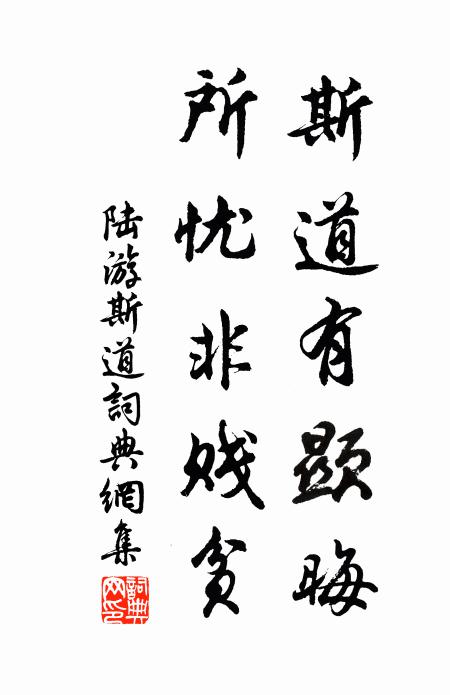 斯道有顕晦
所忧非贱贫
陆游斯道詞典網集
詞典網印